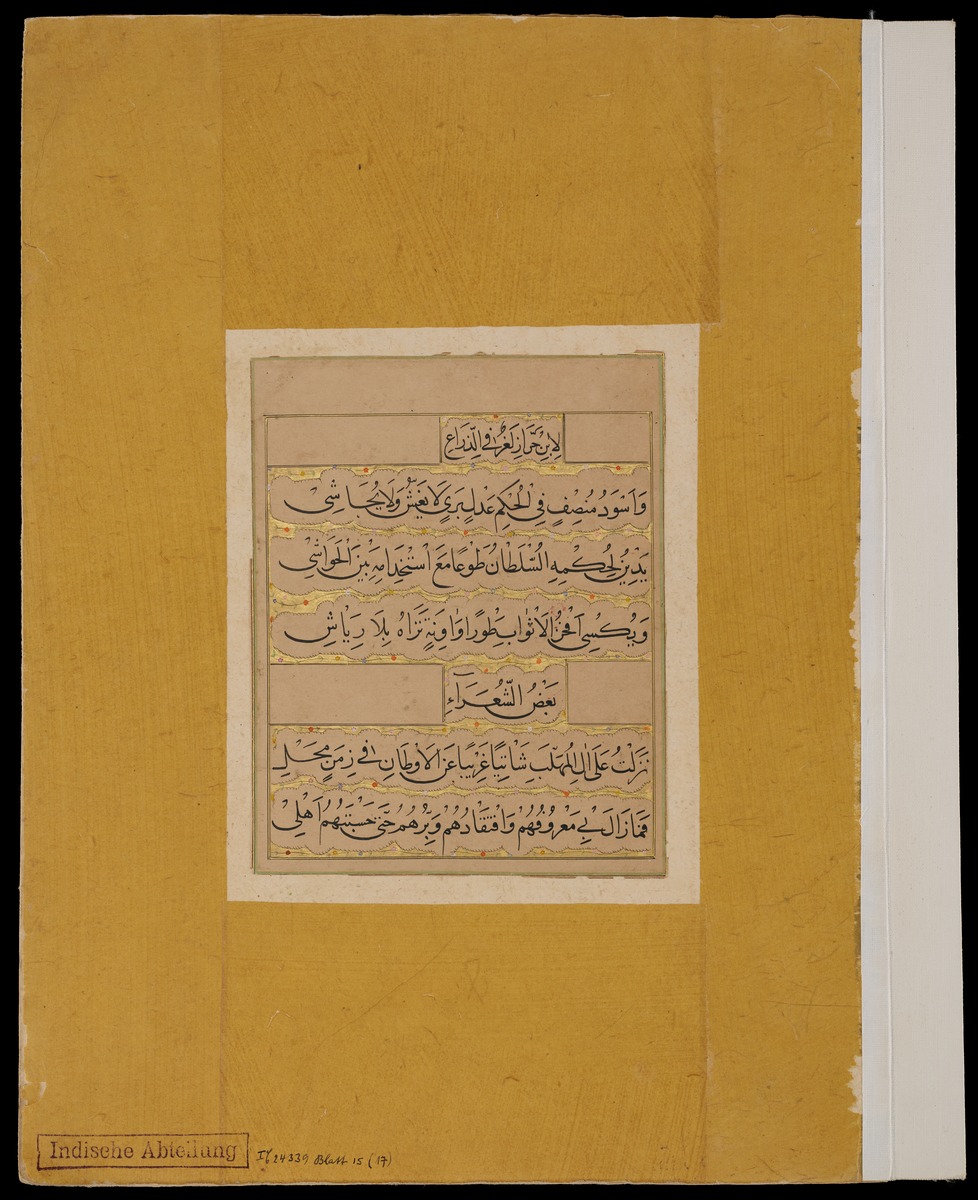 لِابْنِ خَرَّازٍ لُغْزٌ فِي الذِّرَاعِ
وَاَسْوَدُ مُنْصِفٍ فِي الْحُكْمِ عَدْلٍ بَرِيٍ لَا يَغُشُّ وَلَا يُحَاشِي
يَدِينُ لِحُكْمِهِ السُّلْطَانُ طَوْعًا مَعَ اسْتِخْدَامِهِ بَيْنَ الْحَوَاشِي
وَيُكْسِي اَفْخَرَ الْاَثْوَابِ طَوْرًا وَاٰوِنَةٍ تَرَاهُ بِلَا رِيَاشِ
بَعْضُ الشُّعَرَآءِ
نَزَلْتُ عَلٰى اٰلِ الْمُهَلَّبِ شَاتِيًا غَرِيبًا عَنِ الْاَوْطَانِ فِي زَمَنٍ مَحْلِ
فَمَا زَالَ بِي مَعْرُوفُهُمْ وَافْتِقَادُهُمْ وَبِرُّهُمْ حَتّٰى حَسِبْتُهُمُ اَهْلِي
Indische Abteilung
I 24339 Blatt 15 (17)